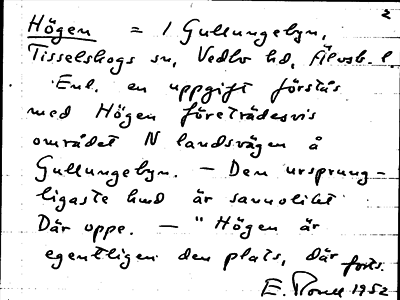 2
Högen = / Gullungebyn,
Tisselskogs sn, Vedbo hd, Älvsb. l.
Enl. en uppgift förstås
med Högen företrädesvis
området N landsvägen å
Gullungebyn. — Den ursprung-
ligaste är sannolikt
Där oppe. — " Högen är
egentligen den plats, där forts.
E. 1952